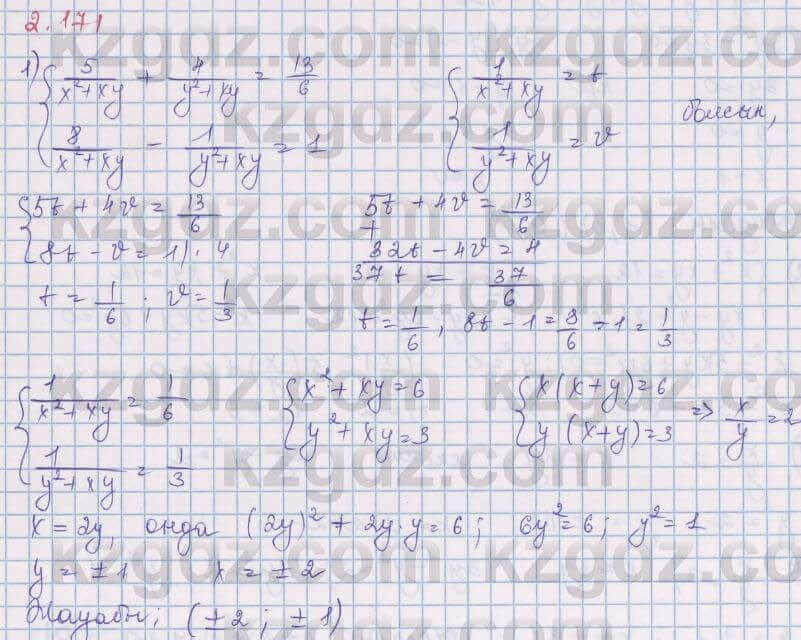 2.171
1) { 5/(x²+xy) + 4/(y²+xy) = 13/6    { 1/(x²+xy) = t
{ 8/(x²+xy) - 1/(y²+xy) = 1    { 1/(y²+xy) = v    болсын,
{ 5t + 4v = 13/6    5t + 4v = 13/6
{ 8t - v = 1 | · 4    + 32t - 4v = 4
37t = 37/6
t = 1/6 ; v = 1/3    t = 1/6 , 8t - 1 = 8/6 - 1 = 1/3
{ 1/(x²+xy) = 1/6    { x² + xy = 6    { x(x+y) = 6
{ 1/(y²+xy) = 1/3    { y² + xy = 3    { y(x+y) = 3 => x/y = 2
x = 2y, онда (2y)² + 2y·y = 6 ; 6y² = 6 ; y² = 1
y = ±1    x = ±2
Жауабы: (±2 ; ±1)
kzgdz.com